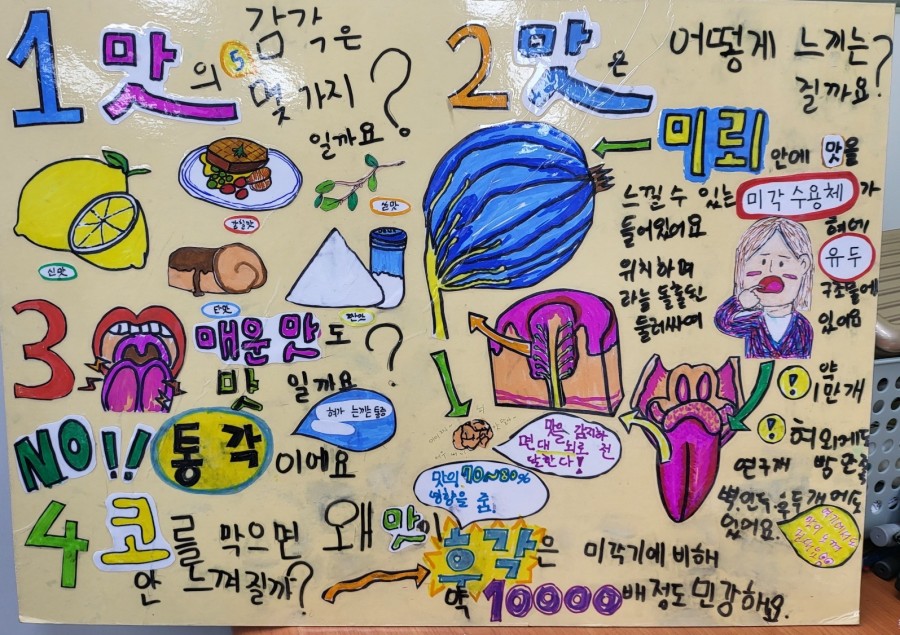 1 맛의 5 감각은
몇 가지
일까요?
신맛
감칠맛
쓴맛
단맛
짠맛
2 맛은 어떻게 느끼는
걸까요?
미뢰 안에 맛을
느낄 수 있는 미각 수용체가
들어있어요 혀에
위치하며 유두
라는 돌출된 구조물에
둘러싸여 있어요
약
1만개
혀 외에도
연구개
벽, 인두, 후두개에도
있었어요.
맛을 감지하
면 대뇌로 전
달한다!
3 매운맛도
맛일까요?
혀가 느끼는 통증
NO!! 통각이에요
4 코를 막으면 왜 맛이
안 느껴질까?
맛의 70~80%
영향을 줌.
후각은 미각기에 비해
약 10000배정도 민감해요.